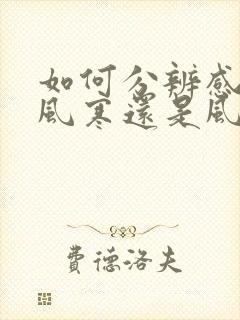 如何分辨感
風寒還是風
費德洛夫